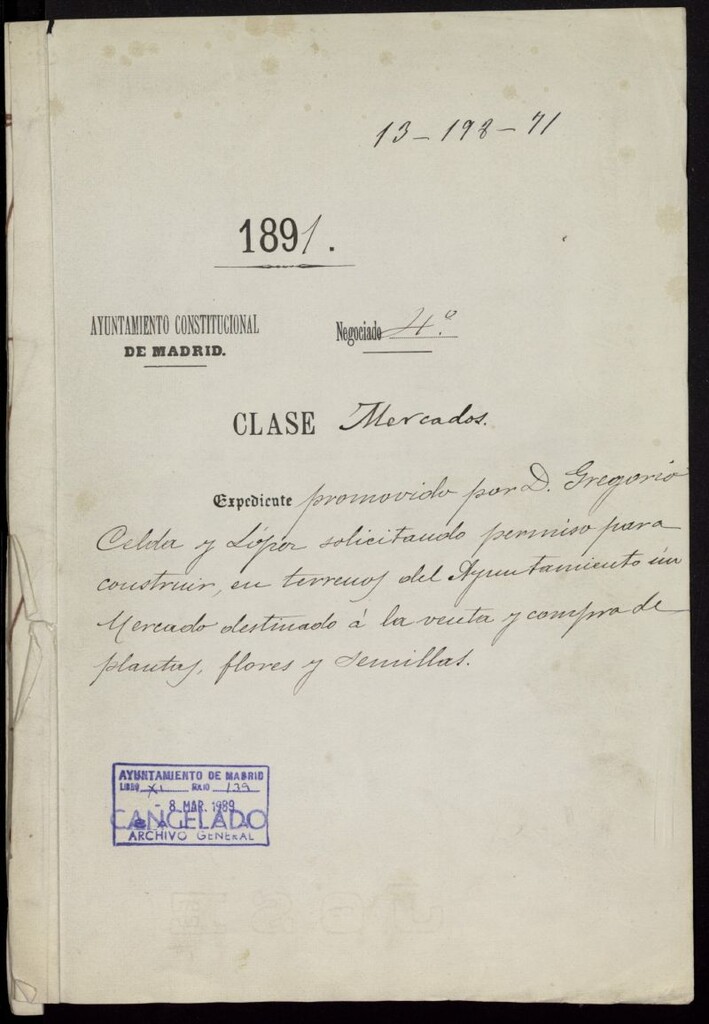 13-198-71
1891.
AYUNTAMIENTO CONSTITUCIONAL
DE MADRID.
Negociado 4.º
CLASE Mercados.
Expediente promovido por D. Gregorio
Celda y López solicitando permiso para
construir, en terrenos del Ayuntamiento un
Mercado destinado á la venta y compra de
plantas, flores y semillas.
AYUNTAMIENTO DE MADRID
LIBRO XI FOLIO 139
- 8 MAR. 1989
CANCELADO
ARCHIVO GENERAL